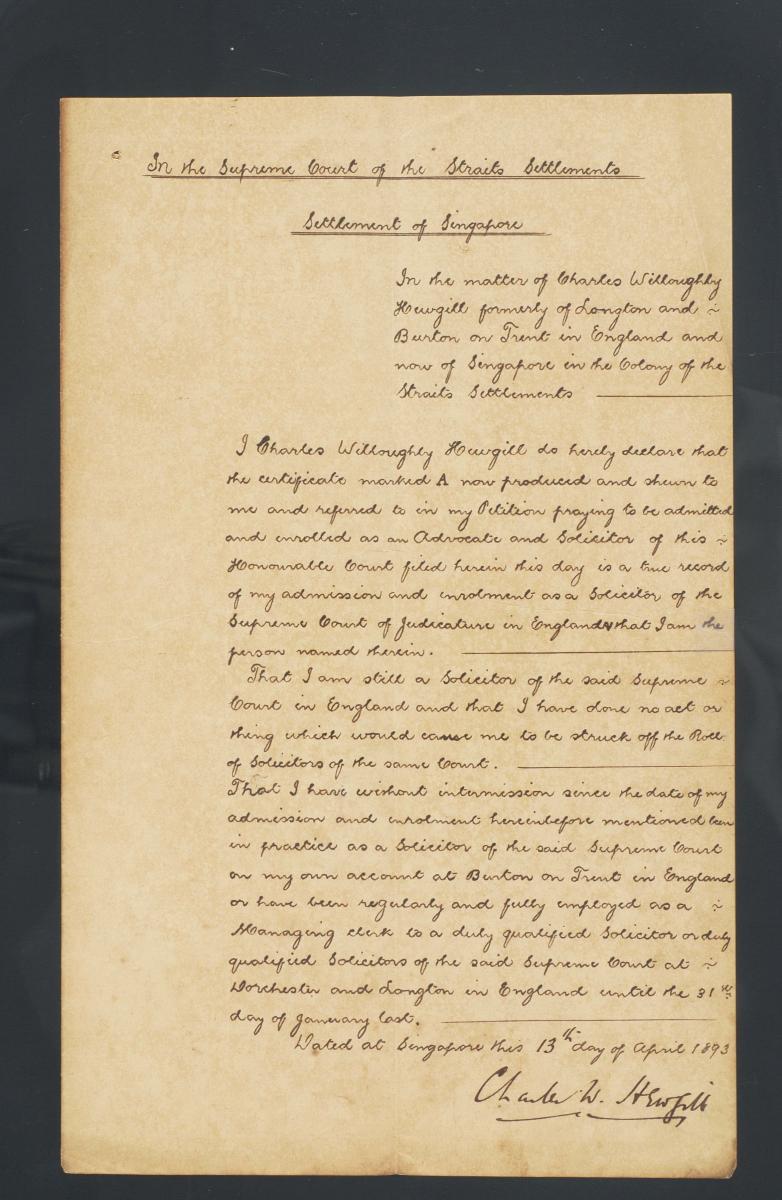 In the Supreme Court of the Straits Settlements
Settlement of Singapore
In the matter of Charles Willoughby
Hewgill formerly of Longton and ~
Burton on Trent in England and
now of Singapore in the Colony of the
Straits Settlements
I Charles Willoughby Hewgill do hereby declare that
the certificate marked A now produced and shewn to
me and referred to in my Petition praying to be admitted
and enrolled as an Advocate and Solicitor of this ~
Honourable Court filed herein this day is a true record
of my admission and enrolment as a Solicitor of the
Supreme Court of Judicature in England & that I am the
person named therein.
That I am still a Solicitor of the said Supreme ~
Court in England and that I have done no act or
thing which would cause me to be struck off the Roll
of Solicitors of the same Court.
That I have without intermission since the date of my
admission and enrolment hereinbefore mentioned been
in practice as a Solicitor of the said Supreme Court
on my own account at Burton on Trent in England
or have been regularly and fully employed as a ~
Managing clerk to a duly qualified Solicitor or duly
qualified Solicitors of the said Supreme Court at ~
Dorchester and Longton in England until the 31st
day of January last.
Dated at Singapore this 13th day of April 1893
Charles W. Hewgill